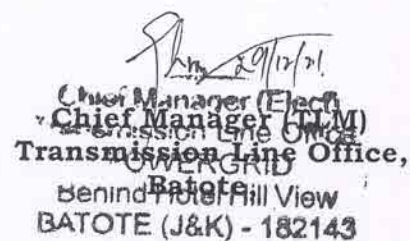 29/12/21
Chief Manager (Elect)
Chief Manager (TLM)
Transmission Line Office
Transmission Line Office,
POWERGRID
Batote.
Behind Hotel Hill View
BATOTE (J&K) - 182143